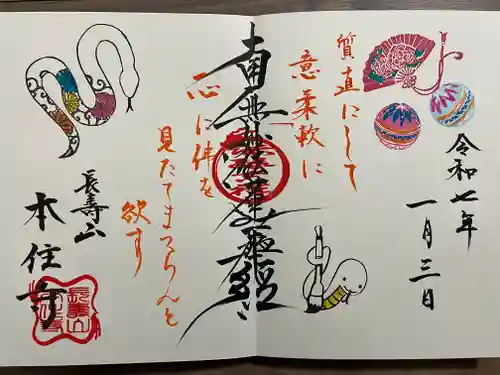 令和七年
一月三日
質直にして
意柔軟に
南無妙法蓮華経
一心に佛を
見たてまつらんと
欲す
長寿山
本住寺